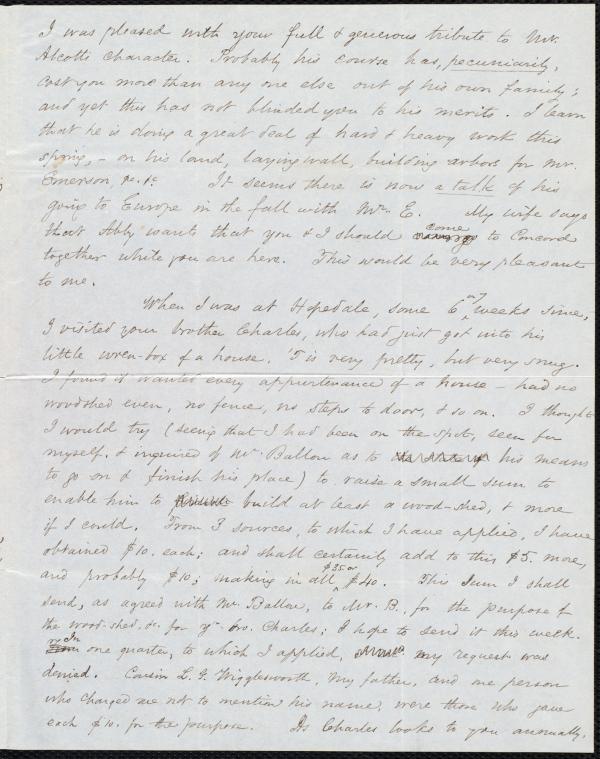 I was pleased with your full & generous tribute to Mr.
Alcott's character. Probably his course has, pecuniarily,
cost you more than any one else out of his own family;
and yet this has not blinded you to his merits. I learn
that he is doing a great deal of hard & heavy work this
spring, – on his land, laying wall, building arbors for Mr.
Emerson, &c. &c. It seems there is now a talk of his
going to Europe in the fall with Mr. E. My wife says
that Abby wants that you & I should come to Concord
together while you are here. This would be very pleasant
to me.
When I was at Hopedale, some 6 or 7 weeks since,
I visited your brother Charles, who had just got into his
little wren-box of a house. 'Tis very pretty, but very snug.
I found it wanted every appurtenance of a house – had no
woodshed even, no fence, no steps to door, & so on. I thought
I would try (seeing that I had been on the spot, seen for
myself, & inquired of Mr. Ballou as to his means
to go on & finish his place) to raise a small sum to
enable him to build at least a wood-shed, & more
if I could. From 3 sources, to which I have applied, I have
obtained $10. each; and shall certainly add to this $5. more,
and probably $10; making in all $35 or $40. This sum I shall
send, as agreed with Mr. Ballou, to Mr. B., for the purpose of
the wood-shed, &c. for yr. bro. Charles; I hope to send it this week.
In one quarter, to which I applied, my request was
denied. Cousin L. G. Wigglesworth, my father, and one person
who charged me not to mention his name, were those who gave
each $10. for the purpose. As Charles looks to you annually,